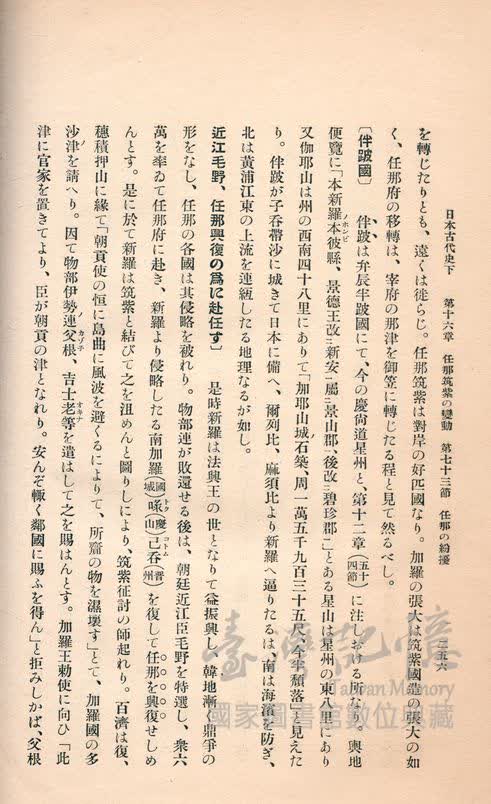 日本古代史下　第十六章　任那筑紫の變動　第七十三節　任那の紛擾　二五六
を轉じたりとも、遠くは徙らじ。任那筑紫は對岸の好匹國なり。加羅の張大は筑紫國造の張大の如
く、任那府の移轉は、宰府の那津を御笠に轉じたる程と見て然るべし。
〔伴跛國〕　伴跛は弁辰半跛國にて、今の慶尙道星州と、第十二章（五十四節）に注しおける所なり。輿地
便覽に「本新羅本彼縣、景德王改㆓新安㆒屬㆓景山郡㆒、後改㆓碧珍郡㆒」とある星山は星州の東八里にあり
又伽耶山は州の西南四十八里にありて「加耶山城石築、周一萬五千九百三十五尺、今半頽落」と見えた
り。伴跛が子呑帶沙に城きて日本に備へ、爾列比、麻須比より新羅へ逼りたるは、南は海濱を防ぎ、
北は黃浦江東の上流を連絙したる地理なるが如し。
近江毛野、任那興復の爲に赴任す〕　是時新羅は法興王の世となりて益振興し、韓地漸く鼎爭の
形をなし、任那の各國は其侵略を被れり。物部連が敗還せる後は、朝廷近江臣毛野を特選し、衆六
萬を率ゐて任那府に赴き、新羅より侵略したる南加羅（國城）㖨（慶山）己呑（晋州）を復して任那を興復せしめ
んとす。是に於て新羅は筑紫と結びて之を沮めんと圖りしにより、筑紫征討の師起れり。百濟は復、
穗積押山に緣て「朝貢使の恒に島曲に風波を避くるによりて、所齎の物を濕壞す」とて、加羅國の多
沙津を請へり。因て物部伊勢連父根、吉士老等を遣はして之を賜はんとす。加羅王勅使に向ひ「此
津に官家を置きてより、臣が朝貢の津となれり。安んぞ輙く鄰國に賜ふを得ん」と拒みしかば、父根
臺灣記憶
Taiwan Memory
國家圖書館數位典藏